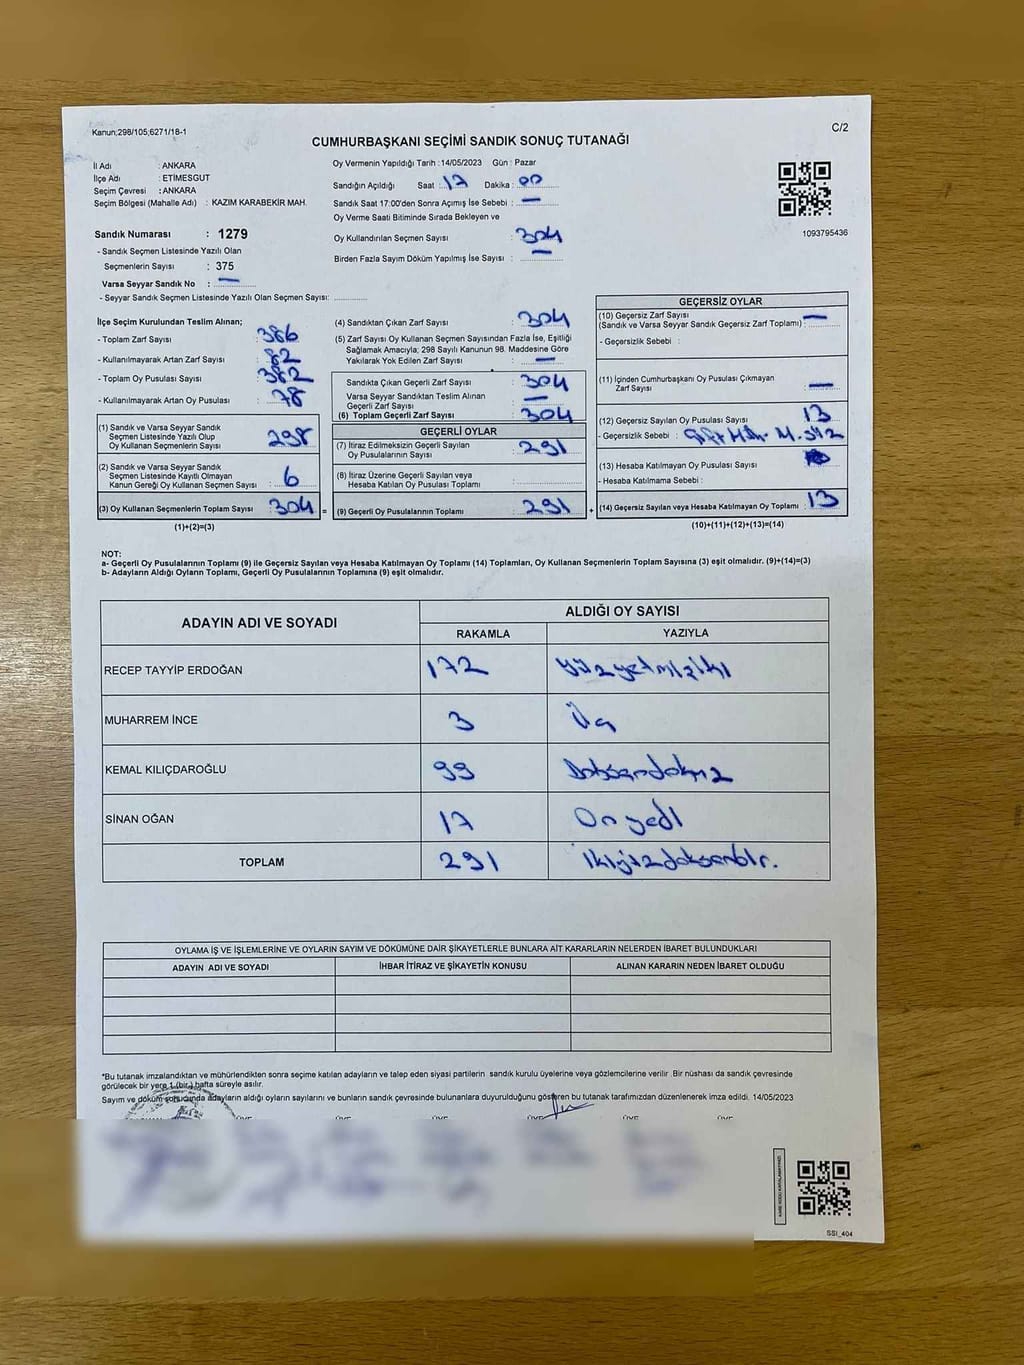 Kanun;298/105;6271/18-1
C/2
CUMHURBAŞKANI SEÇİMİ SANDIK SONUÇ TUTANAĞI
İl Adı : ANKARA
İlçe Adı : ETİMESGUT
Seçim Çevresi : ANKARA
Seçim Bölgesi (Mahalle Adı) : KAZIM KARABEKİR MAH.
Sandık Numarası : 1279
- Sandık Seçmen Listesinde Yazılı Olan
Seçmenlerin Sayısı : 375
Varsa Seyyar Sandık No : —
- Seyyar Sandık Seçmen Listesinde Yazılı Olan Seçmen Sayısı: ............
Oy Vermenin Yapıldığı Tarih :14/05/2023 Gün : Pazar
Sandığın Açıldığı Saat : 17 Dakika : 00
Sandık Saat 17:00'den Sonra Açımış İse Sebebi : —
Oy Verme Saati Bitiminde Sırada Bekleyen ve
Oy Kullandırılan Seçmen Sayısı : 304
Birden Fazla Sayım Döküm Yapılmış İse Sayısı : —
1093795436
İlçe Seçim Kurulundan Teslim Alınan;
- Toplam Zarf Sayısı : 386
- Kullanılmayarak Artan Zarf Sayısı : 82
- Toplam Oy Pusulası Sayısı : 382
- Kullanılmayarak Artan Oy Pusulası : 78
(1) Sandık ve Varsa Seyyar Sandık
Seçmen Listesinde Yazılı Olup
Oy Kullanan Seçmenlerin Sayısı : 298
(2) Sandık ve Varsa Seyyar Sandık
Seçmen Listesinde Kayıtlı Olmayan
Kanun Gereği Oy Kullanan Seçmen Sayısı : 6
(3) Oy Kullanan Seçmenlerin Toplam Sayısı : 304 =
(1)+(2)=(3)
(4) Sandıktan Çıkan Zarf Sayısı : 304
(5) Zarf Sayısı Oy Kullanan Seçmen Sayısından Fazla İse, Eşitliği
Sağlamak Amacıyla; 298 Sayılı Kanunun 98. Maddesine Göre
Yakılarak Yok Edilen Zarf Sayısı : —
Sandıkta Çıkan Geçerli Zarf Sayısı : 304
Varsa Seyyar Sandıktan Teslim Alınan
Geçerli Zarf Sayısı : —
(6) Toplam Geçerli Zarf Sayısı : 304
GEÇERLİ OYLAR
(7) İtiraz Edilmeksizin Geçerli Sayılan
Oy Pusulalarının Sayısı : 291
(8) İtiraz Üzerine Geçerli Sayılan veya
Hesaba Katılan Oy Pusulası Toplamı :
(9) Geçerli Oy Pusulalarının Toplamı : 291 +
GEÇERSİZ OYLAR
(10) Geçersiz Zarf Sayısı : —
(Sandık ve Varsa Seyyar Sandık Geçersiz Zarf Toplamı)
- Geçersizlik Sebebi :
(11) İçinden Cumhurbaşkanı Oy Pusulası Çıkmayan
Zarf Sayısı : —
(12) Geçersiz Sayılan Oy Pusulası Sayısı : 13
- Geçersizlik Sebebi :
(13) Hesaba Katılmayan Oy Pusulası Sayısı :
- Hesaba Katılmama Sebebi :
(14) Geçersiz Sayılan veya Hesaba Katılmayan Oy Toplamı : 13
(10)+(11)+(12)+(13)=(14)
NOT:
a- Geçerli Oy Pusulalarının Toplamı (9) ile Geçersiz Sayılan veya Hesaba Katılmayan Oy Toplamı (14) Toplamları, Oy Kullanan Seçmenlerin Toplam Sayısına (3) eşit olmalıdır. (9)+(14)=(3)
b- Adayların Aldığı Oyların Toplamı, Geçerli Oy Pusulalarının Toplamına (9) eşit olmalıdır.
ADAYIN ADI VE SOYADI ALDIĞI OY SAYISI
RAKAMLA YAZIYLA
RECEP TAYYİP ERDOĞAN 172 yüzyetmişiki
MUHARREM İNCE 3 Üç
KEMAL KILIÇDAROĞLU 99 Doksandokuz
SİNAN OĞAN 17 On yedi
TOPLAM 291 ikiyüzdoksanbir.
OYLAMA İŞ VE İŞLEMLERİNE VE OYLARIN SAYIM VE DÖKÜMÜNE DAİR ŞİKAYETLERLE BUNLARA AİT KARARLARIN NELERDEN İBARET BULUNDUKLARI
ADAYIN ADI VE SOYADI İHBAR İTİRAZ VE ŞİKAYETİN KONUSU ALINAN KARARIN NEDEN İBARET OLDUĞU
*Bu tutanak imzalandıktan ve mühürlendikten sonra seçime katılan adayların ve talep eden siyasi partilerin sandık kurulu üyelerine veya gözlemcilerine verilir .Bir nüshası da sandık çevresinde
görülecek bir yere 1 (bir) hafta süreyle asılır.
Sayım ve döküm sonucunda adayların aldığı oyların sayılarını ve bunların sandık çevresinde bulunanlara duyurulduğunu gösteren bu tutanak tarafımızdan düzenlenerek imza edildi. 14/05/2023
ÜYE ÜYE ÜYE ÜYE ÜYE ÜYE
SSI_404